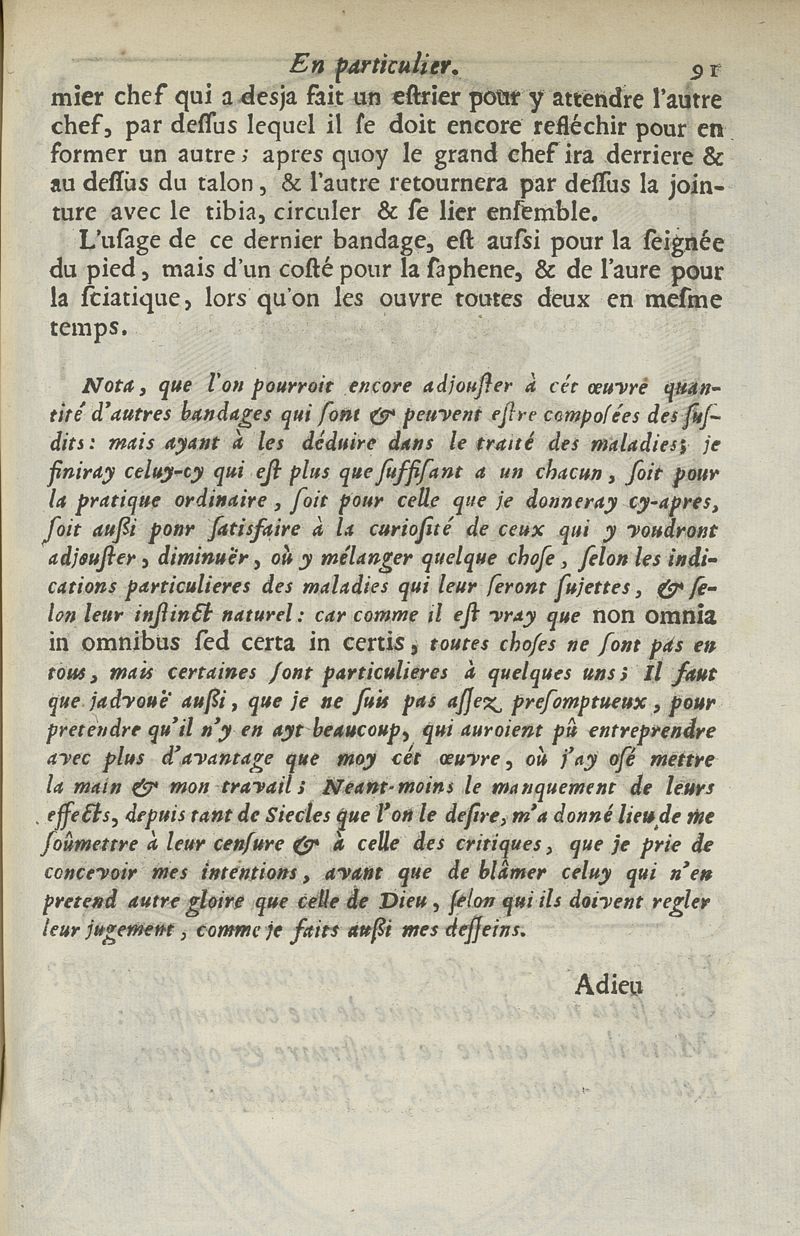 En particulier. 91
mier chef qui a desja fait un eſtrier pour y attendre l'autre
chef, par deſſus lequel il ſe doit encore refléchir pour en
former un autre; apres quoy le grand chef ira derriere &
au deſſus du talon, & l'autre retournera par deſſus la join-
ture avec le tibia, circuler & ſe lier enſemble.
L'uſage de ce dernier bandage, eſt auſsi pour la ſeignée
du pied, mais d'un coſté pour la ſaphene, & de l'aure pour
la ſciatique, lors qu'on les ouvre toutes deux en meſme
temps.
Nota, que l'on pourroit encore adjouſter à cét œuvre quan-
tité d'autres bandages qui ſont & peuvent eſtre compoſées des ſuſ-
dits: mais ayant à les déduire dans le traité des maladies; je
finiray celuy-cy qui eſt plus que ſuffiſant a un chacun, ſoit pour
la pratique ordinaire, ſoit pour celle que je donneray cy-apres,
ſoit auſſi ponr ſatisfaire à la curioſité de ceux qui y voudront
adjouſter, diminuër, où y mélanger quelque choſe, ſelon les indi-
cations particulieres des maladies qui leur ſeront ſujettes, & ſe-
lon leur inſtinct naturel: car comme il eſt vray que non omnia
in omnibus ſed certa in certis, toutes choſes ne ſont pas en
tous, mais certaines ſont particulieres à quelques uns; Il faut
que jadvouë auſſi, que je ne ſuis pas aſſez preſomptueux, pour
pretendre qu'il n'y en ayt beaucoup, qui auroient pû entreprendre
avec plus d'avantage que moy cét œuvre, où j'ay oſé mettre
la main & mon travail; Neant-moins le manquement de leurs
effects, depuis tant de Siecles que l'on le deſire, m'a donné lieu de me
ſoûmettre à leur cenſure & à celle des critiques, que je prie de
concevoir mes intentions, avant que de blâmer celuy qui n'en
pretend autre gloire que celle de Dieu, ſelon qui ils doivent regler
leur jugement, comme je faits auſſi mes deſſeins.
Adieu